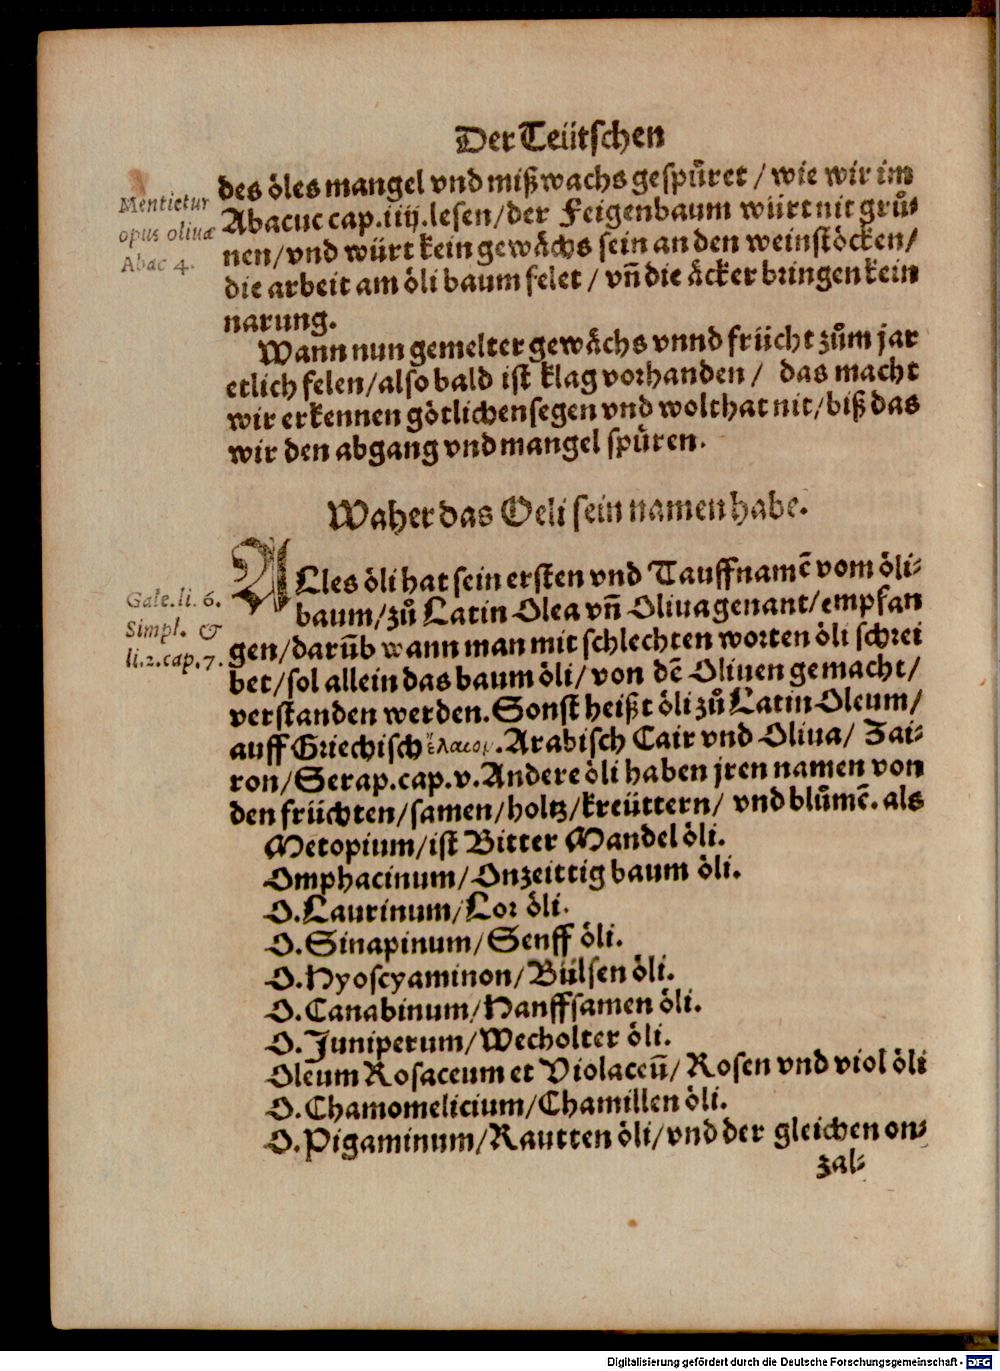 Der Teütschen
Mentietur
opus oliuæ
Abac 4.
des öles mangel vnd mißwachs gespüret / wie wir im
Abacuc cap.iiij.lesen/der Feigenbaum würt nit grů⸗
nen/vnd würt kein gewächs sein an den weinstöcken/
die arbeit am öli baum felet / vn̄ die äcker bringen kein
narung.
Wann nun gemelter gewächs vnnd früicht zům jar
etlich felen/also bald ist klag vorhanden / das macht
wir erkennen götlichen segen vnd wolthat nit/biß das
wir den abgang vnd mangel spüren.
Waher das Oeli sein namen habe.
Gale.li.6.
Simpl. &
li.2.cap.7.
ALles öli hat sein ersten vnd Tauffnamē vom öli⸗
baum/zů Latin Olea vn̄ Oliua genant/empfan
gen/darūb wann man mit schlechten worten öli schrei
bet/sol allein das baum öli/von dē Oliuen gemacht/
verstanden werden.Sonst heißt öli zů Latin Oleum/
auff Griechisch ἔλαιον.Arabisch Cair vnd Oliua/ Zai⸗
ron/Serap.cap.v.Andere öli haben jren namen von
den früichten/samen/holtz/kreüttern/ vnd blůmē.als
Metopium/ist Bitter Mandel öli.
Omphacinum/Onzeittig baum öli.
O.Laurinum/Lor öli.
O.Sinapinum/Senff öli.
O.Hyoscyaminon/Bülsen öli.
O.Canabinum/Hanffsamen öli.
O.Juniperum/Wecholter öli.
Oleum Rosaceum et Violaceū/Rosen vnd viol öli
O.Chamomelicium/Chamillen öli.
O.Pigaminum/Rautten öli/vnd der gleichen on⸗
zal⸗
Digitalisierung gefördert durch die Deutsche Forschungsgemeinschaft - DFG